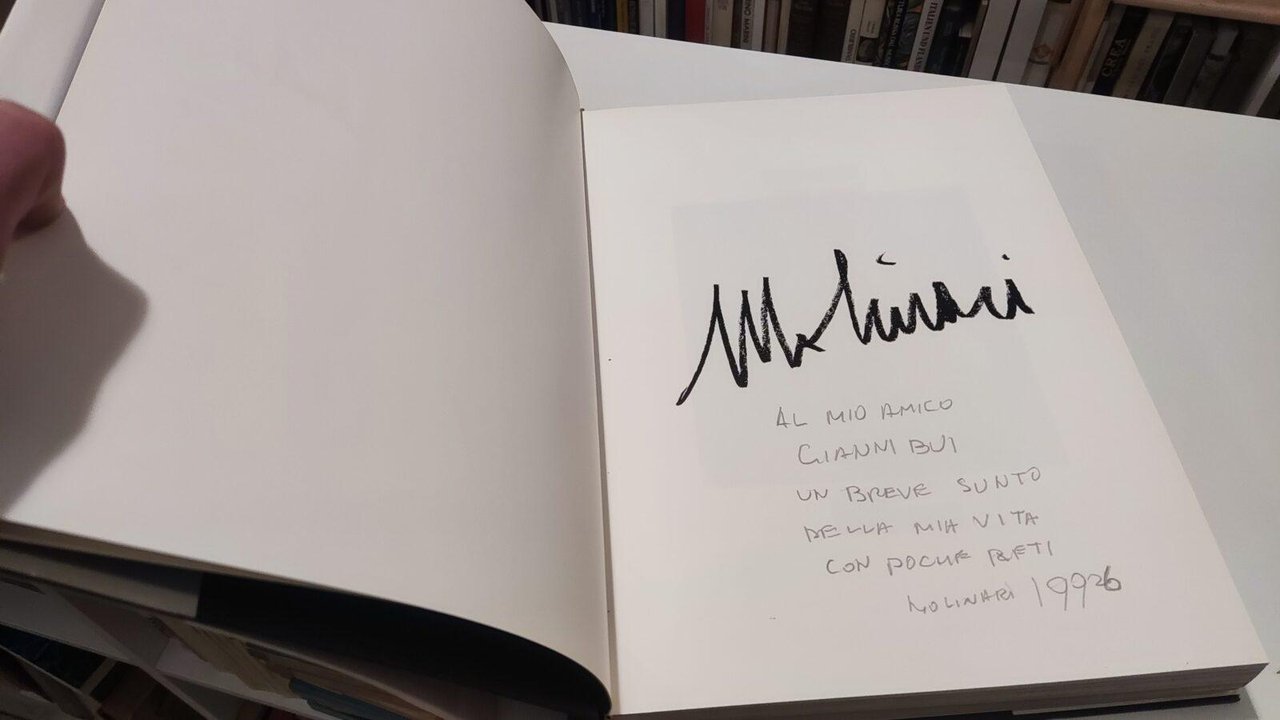 Molinari
AL MIO AMICO
GIANNI BUI
UN BREVE SUNTO
DELLA MIA VITA
CON POCHE RETI
MOLINARI 1996
CREA